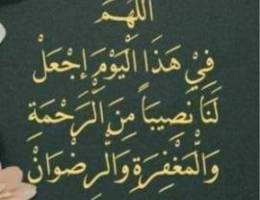 اللَّهُمَّ
فِيْ هَذَا الْيَوْمَ إِجْعَلْ
لَنَا نَصِيبَاً مِنَ الْرَّحْمَةِ
وَالْمَغْفِرَةِ وَالْرِضْوَانْ